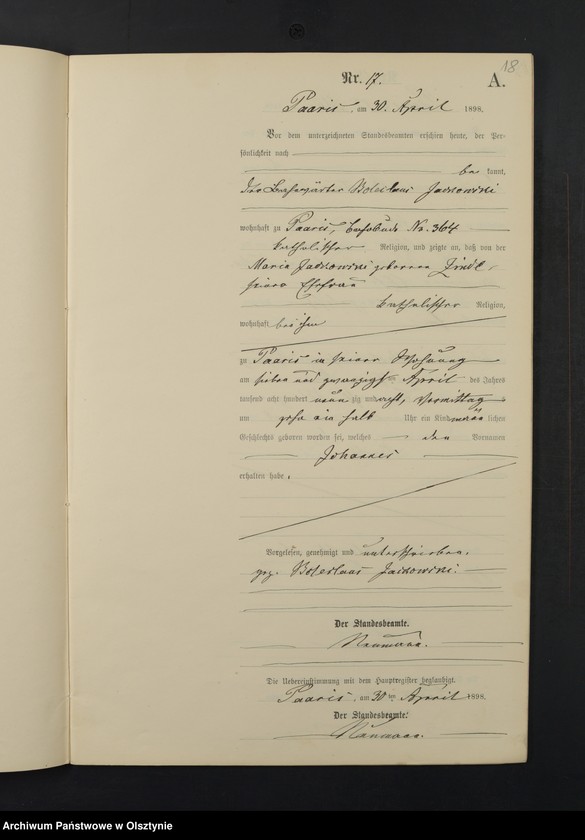 18
Nr. 17.
A.
Paaris, am 30. April 1898.
Vor dem unterzeichneten Standesbeamten erschien heute, der Per-
sönlichkeit nach
be kannt,
der Bahnwärter Boleslaus Jackowski
wohnhaft zu Paaris, Bahnbude Nr. 364
katholischer Religion, und zeigte an, daß von der
Maria Jackowski geborenen
seiner Ehefrau
katholischer Religion,
wohnhaft bei ihm
zu Paaris in seiner Wohnung
am sieben und zwanzigsten April des Jahres
tausend acht hundert neun zig und acht, Vormittag
um zehn ein halb Uhr ein Kind männ lichen
Geschlechts geboren worden sei, welches den Vornamen
Johannes
erhalten habe.
Vorgelesen, genehmigt und unterschrieben.
gez. Boleslaus Jackowski.
Der Standesbeamte.
Neumann.
Die Uebereinstimmung mit dem Hauptregister beglaubigt.
Paaris, am 30ten April 1898.
Der Standesbeamte.
Neumann.
Archiwum Państwowe w Olsztynie